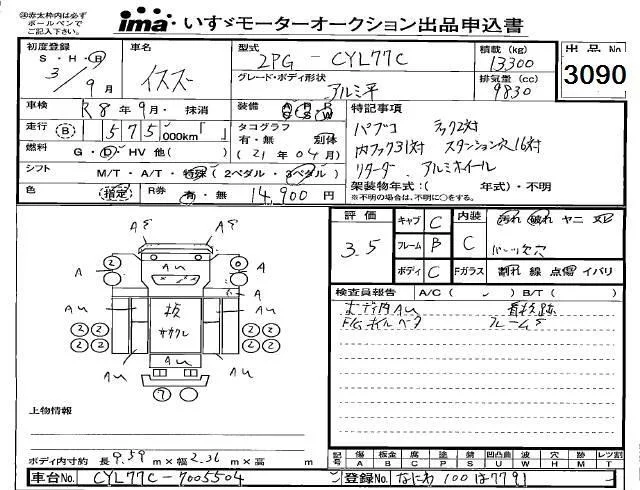 ㊟赤太枠内は必ず
ボールペンで
ご記入下さい。
ima いすゞモーターオークション出品申込書
初度登録 車名 型式 積載 (kg) 出品No
S・H・R イスズ 2PG - CYL77C 13300
3/9月 グレード・ボディ形状 排気量 (cc) 3090
アルミ平 9830
車検 R8年9月・抹消 装備 特記事項
走行 (B) 575,000km「 」 タコグラフ 有・無 別体 パブコ ラック2対
(21年04月) 内フック31対 スタンション穴16対
燃料 G・D・HV 他( ) リターダー アルミホイール
シフト M/T・A/T・特殊 (2ペダル・3ペダル) 架装物年式:( 年式)・不明
※不明の場合は、不明に○をする。
色 指定 R券 有・無 14,900円
評価 3.5 キャブ C 内装 C 汚れ 破れ ヤニ
フレーム B パーツ欠穴
ボディ C Fガラス 割れ 線 点傷 イバリ
検査員報告 A/C ( ) B/T ( )
フレームS
A
AU
板
2
7
上物情報
ボディ内寸約 長 9.59 m×幅 2.36 m×高 m
記号 傷A 板金B 腐C 塗P 錆S 凹凸曲U 波W 穴H 跡M レツ割T
車台No. CYL77C-7005504 登録No. なにわ 100は7791